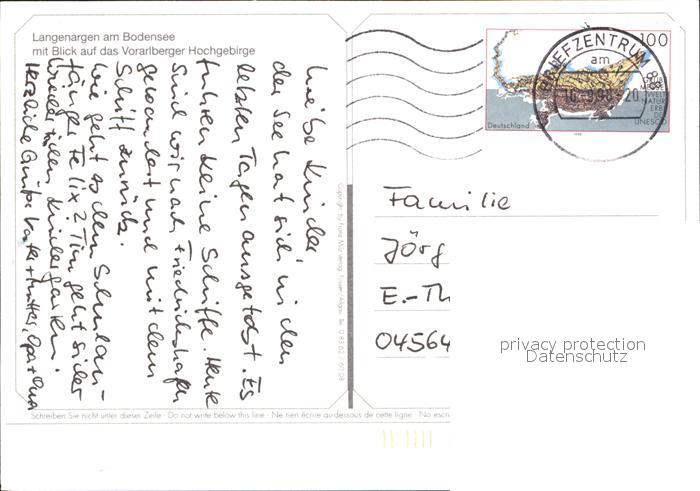 Langenargen am Bodensee
mit Blick auf das Vorarlberger Hochgebirge
Liebe Kinder,
der See hat sich in den
letzten Tagen ausgetobt. Es
fuhren keine Schiffe. Heute
sind wir nach Friedrichshafen
gewandert und mit dem
Schiff zurück.
Wie geht es dem Schulan-
fänger Felix? Tim geht sicher
wieder in den Kindergarten.
Herzliche Grüße Vater + Mutter, Opa + Oma
BRIEFZENTRUM 88
am
98
20
100
MESSEL
WELT
NATUR
ERBE
DER
UNESCO
Deutschland
Familie
Jörg
E.-Th
04564
privacy protection
Datenschutz
Schreiben Sie nicht unter dieser Zeile · Do not write below this line · Ne rien écrire au-dessous de cette ligne · No escri